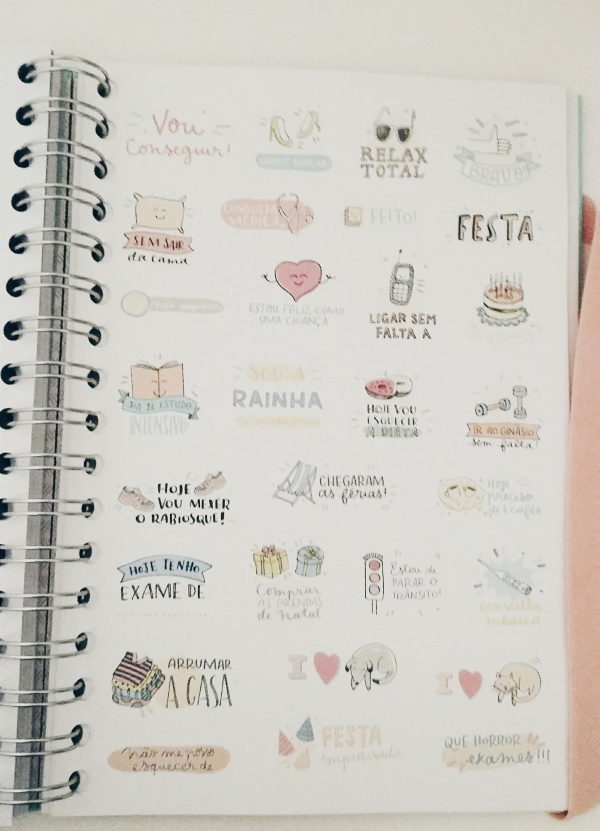 Vou
Conseguir!
RELAX
TOTAL
BRAVO!
SEM SAIR
da cama
CONSULTA
MÉDICA
FEITO!
FESTA
ESTOU FELIZ COMO
UMA CRIANÇA
LIGAR SEM
FALTA A
DIA DE ESTUDO
INTENSIVO
SOU A
RAINHA
HOJE VOU
ESQUECER
A DIETA
IR AO GINÁSIO
sem falta!
HOJE
VOU MEXER
O RABIOSQUE!
CHEGARAM
as férias!
Hoje
preciso
de 5 cafés
HOJE TENHO
EXAME DE
Comprar
AS PRENDAS
de natal
Estou de
PARAR O
TRÂNSITO!
consulta
médica
ARRUMAR
A CASA
I
I
não me posso
esquecer de
FESTA
improvisada
QUE HORROR
exames!!!